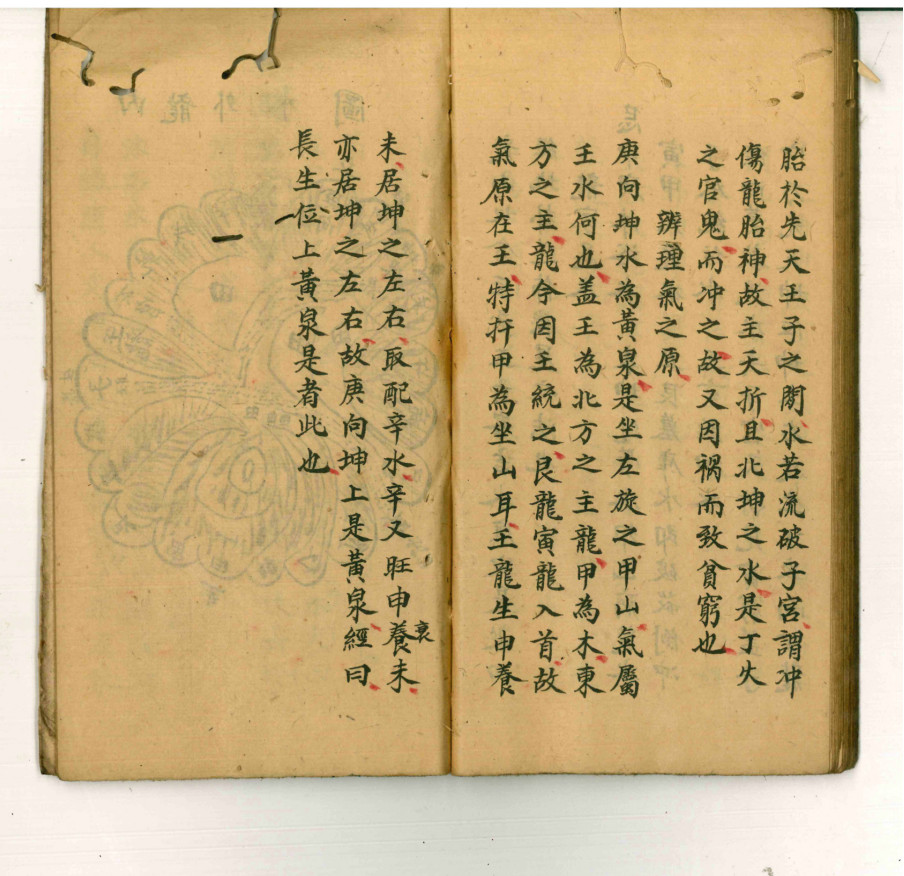 胎於先天王子之間水若流破子宮謂冲
傷龍胎神故主夭折且北坤之水是丁失
之官鬼而冲之故又因禍而致貧窮也
辨理氣之原
庚向坤水為黃泉是坐左旋之甲山氣屬
王水何也盖王為北方之主龍甲為木東
方之主龍今因王統之艮龍寅龍入首故
氣原在王特扦甲為坐山耳王龍生申養
未居坤之左右取配辛水辛又旺申養衰未
亦居坤之左右故庚向坤上是黃泉經曰
長生位上黃泉是者此也